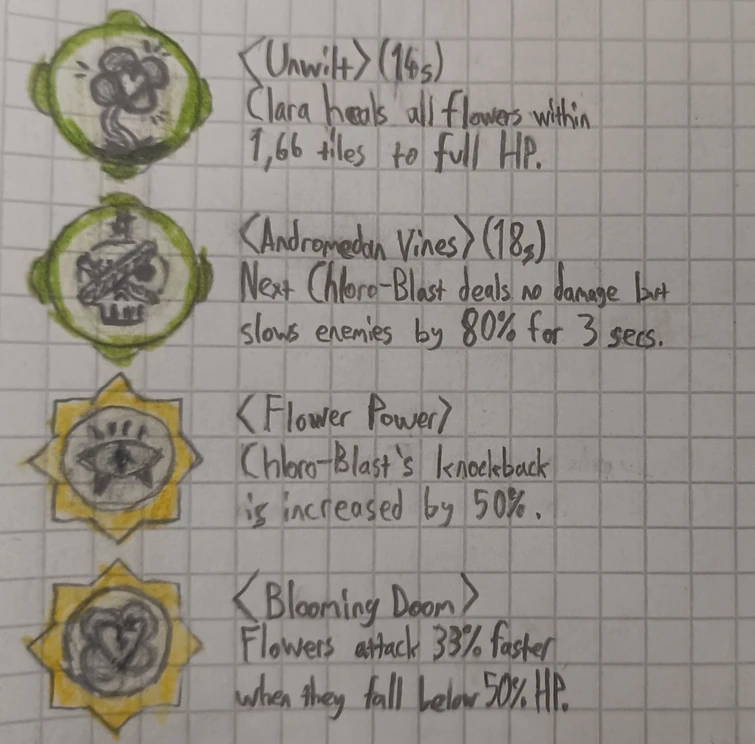 <Unwilt> (14s)
Clara heals all flowers within
1,66 tiles to full HP.
<Andromedan Vines> (18s)
Next Chloro-Blast deals no damage but
slows enemies by 80% for 3 secs.
<Flower Power>
Chloro-Blast's knockback
is increased by 50%.
<Blooming Doom>
Flowers attack 33% faster
when they fall below 50% HP.